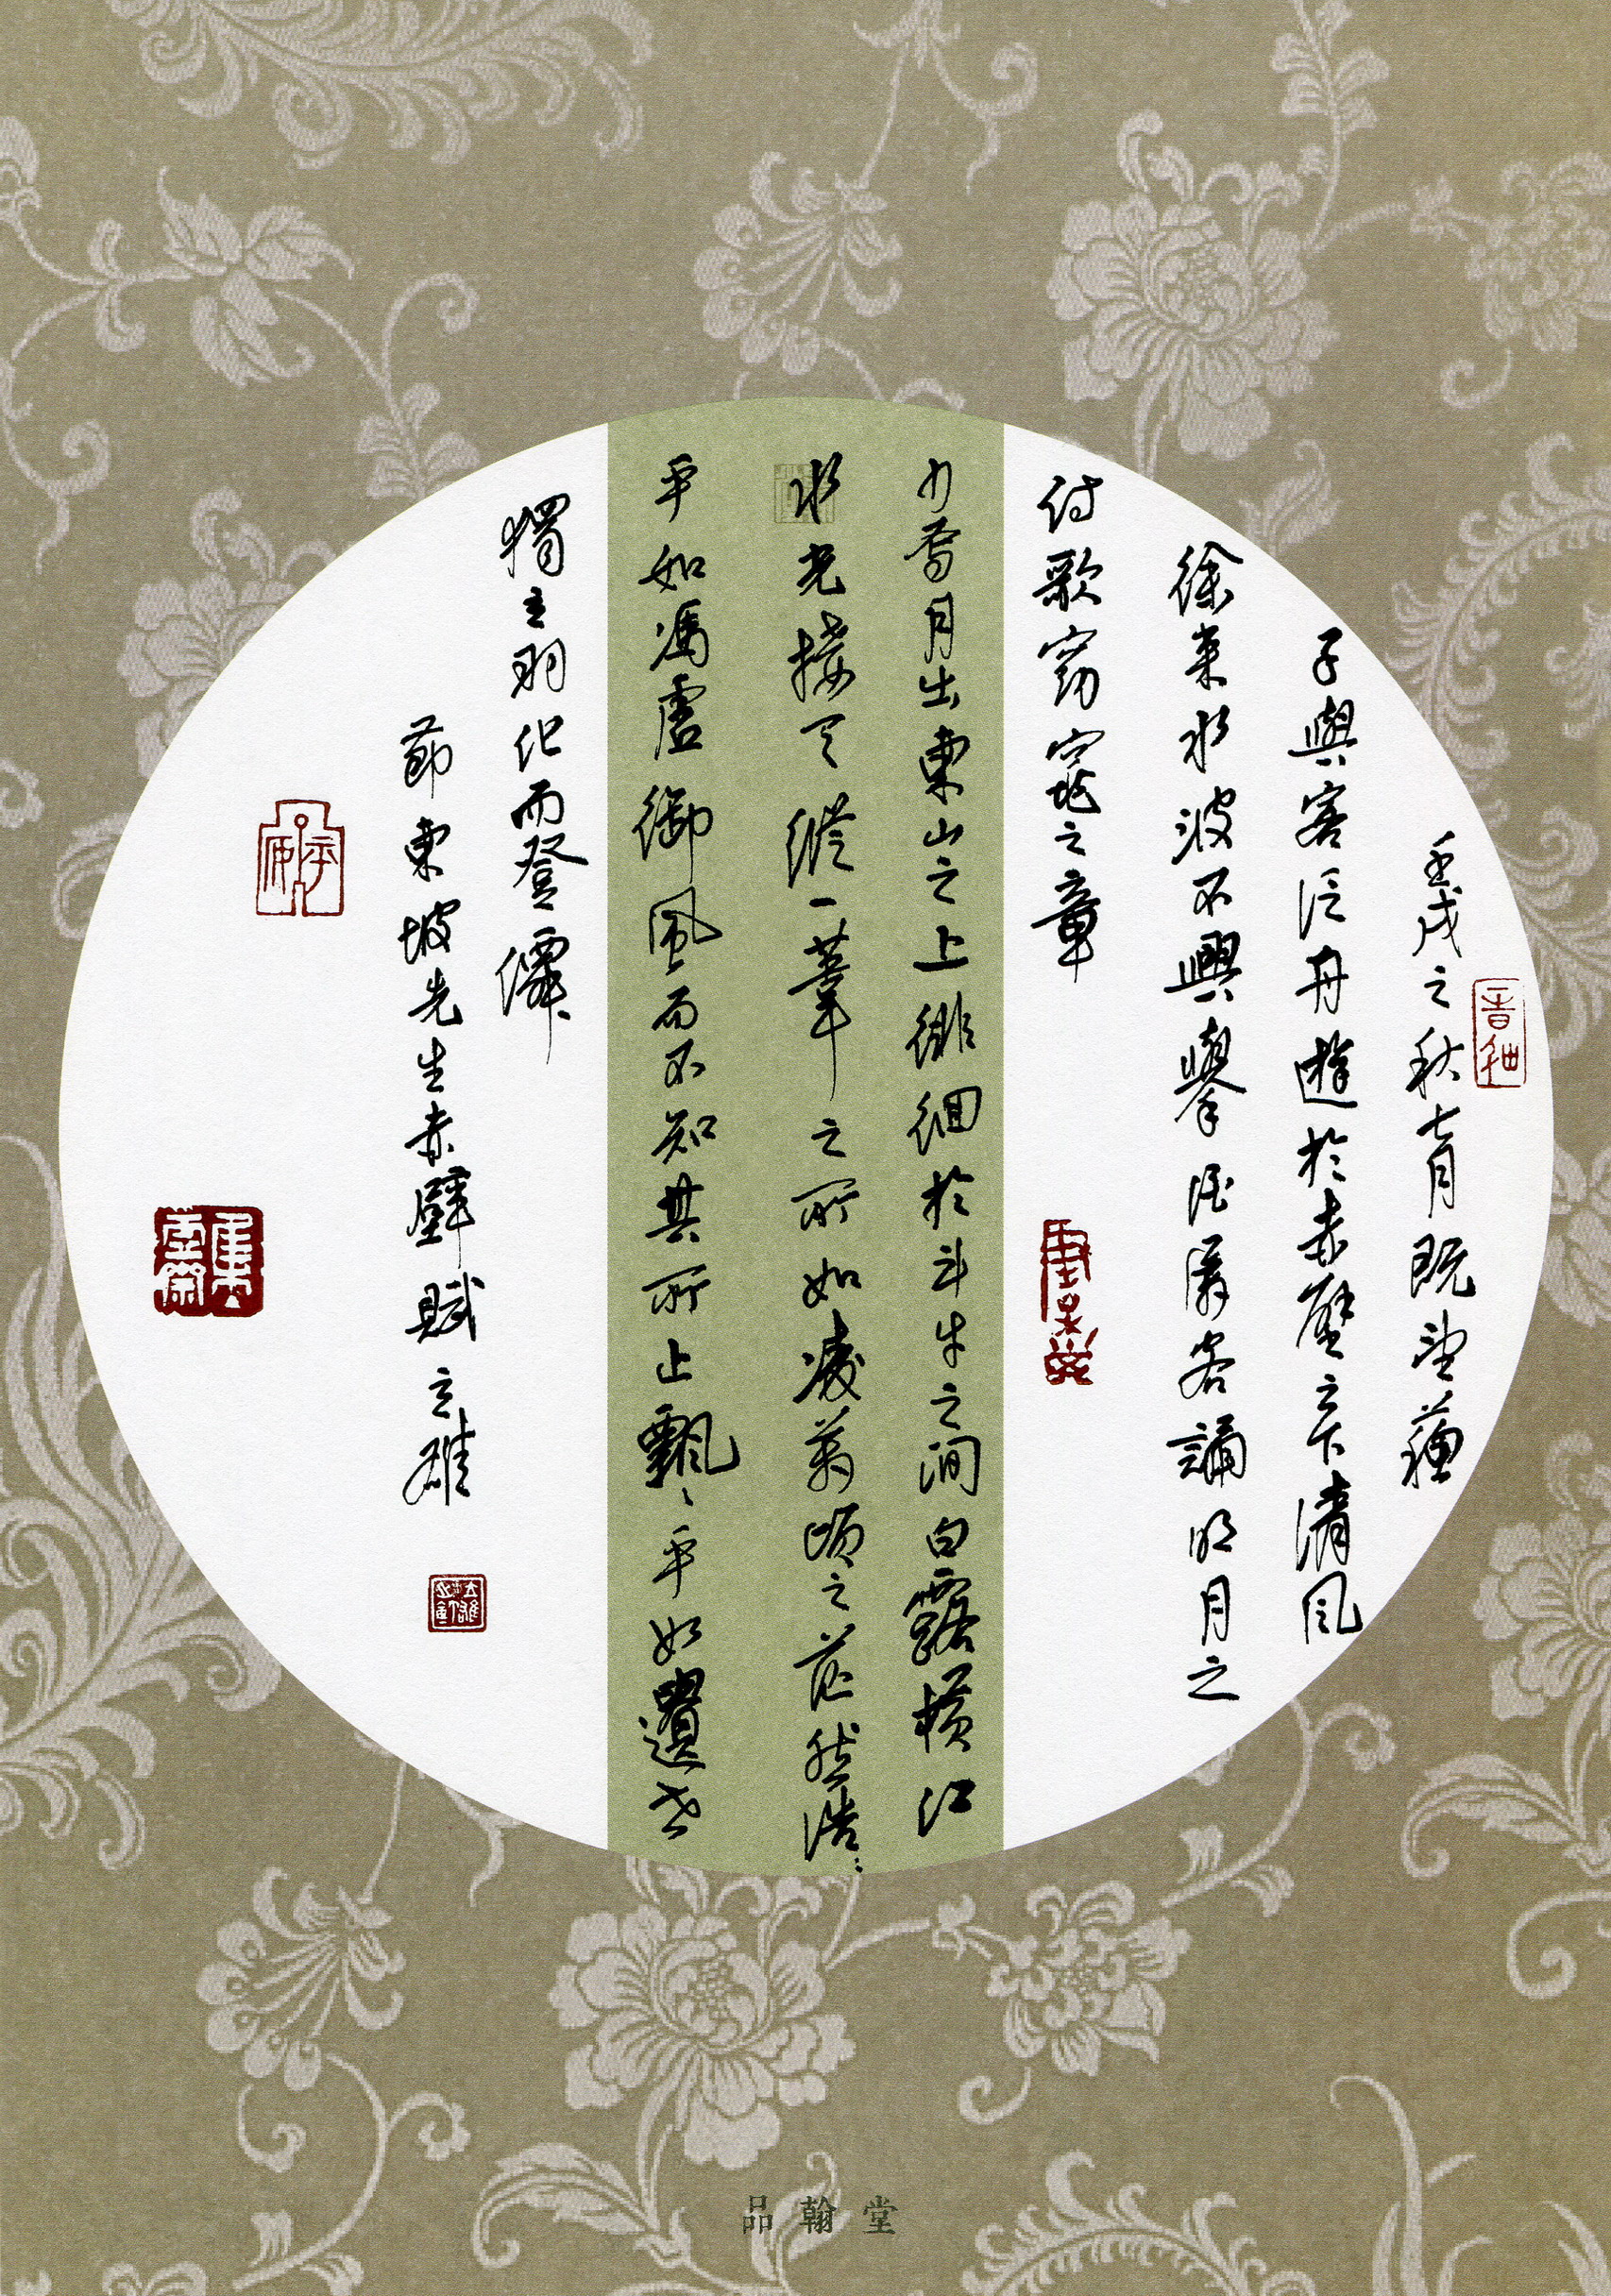 壬戌之秋七月既望蘇
子與客泛舟遊於赤壁之下清風
徐來水波不興舉酒屬客誦明月之
詩歌窈窕之章
少焉月出東山之上徘徊於斗牛之間白露橫江
水光接天縱一葦之所如凌萬頃之茫然浩〻
乎如馮虛御風而不知其所止飄〻乎如遺世
獨立羽化而登僊
節東坡先生赤壁賦立雄
品翰堂